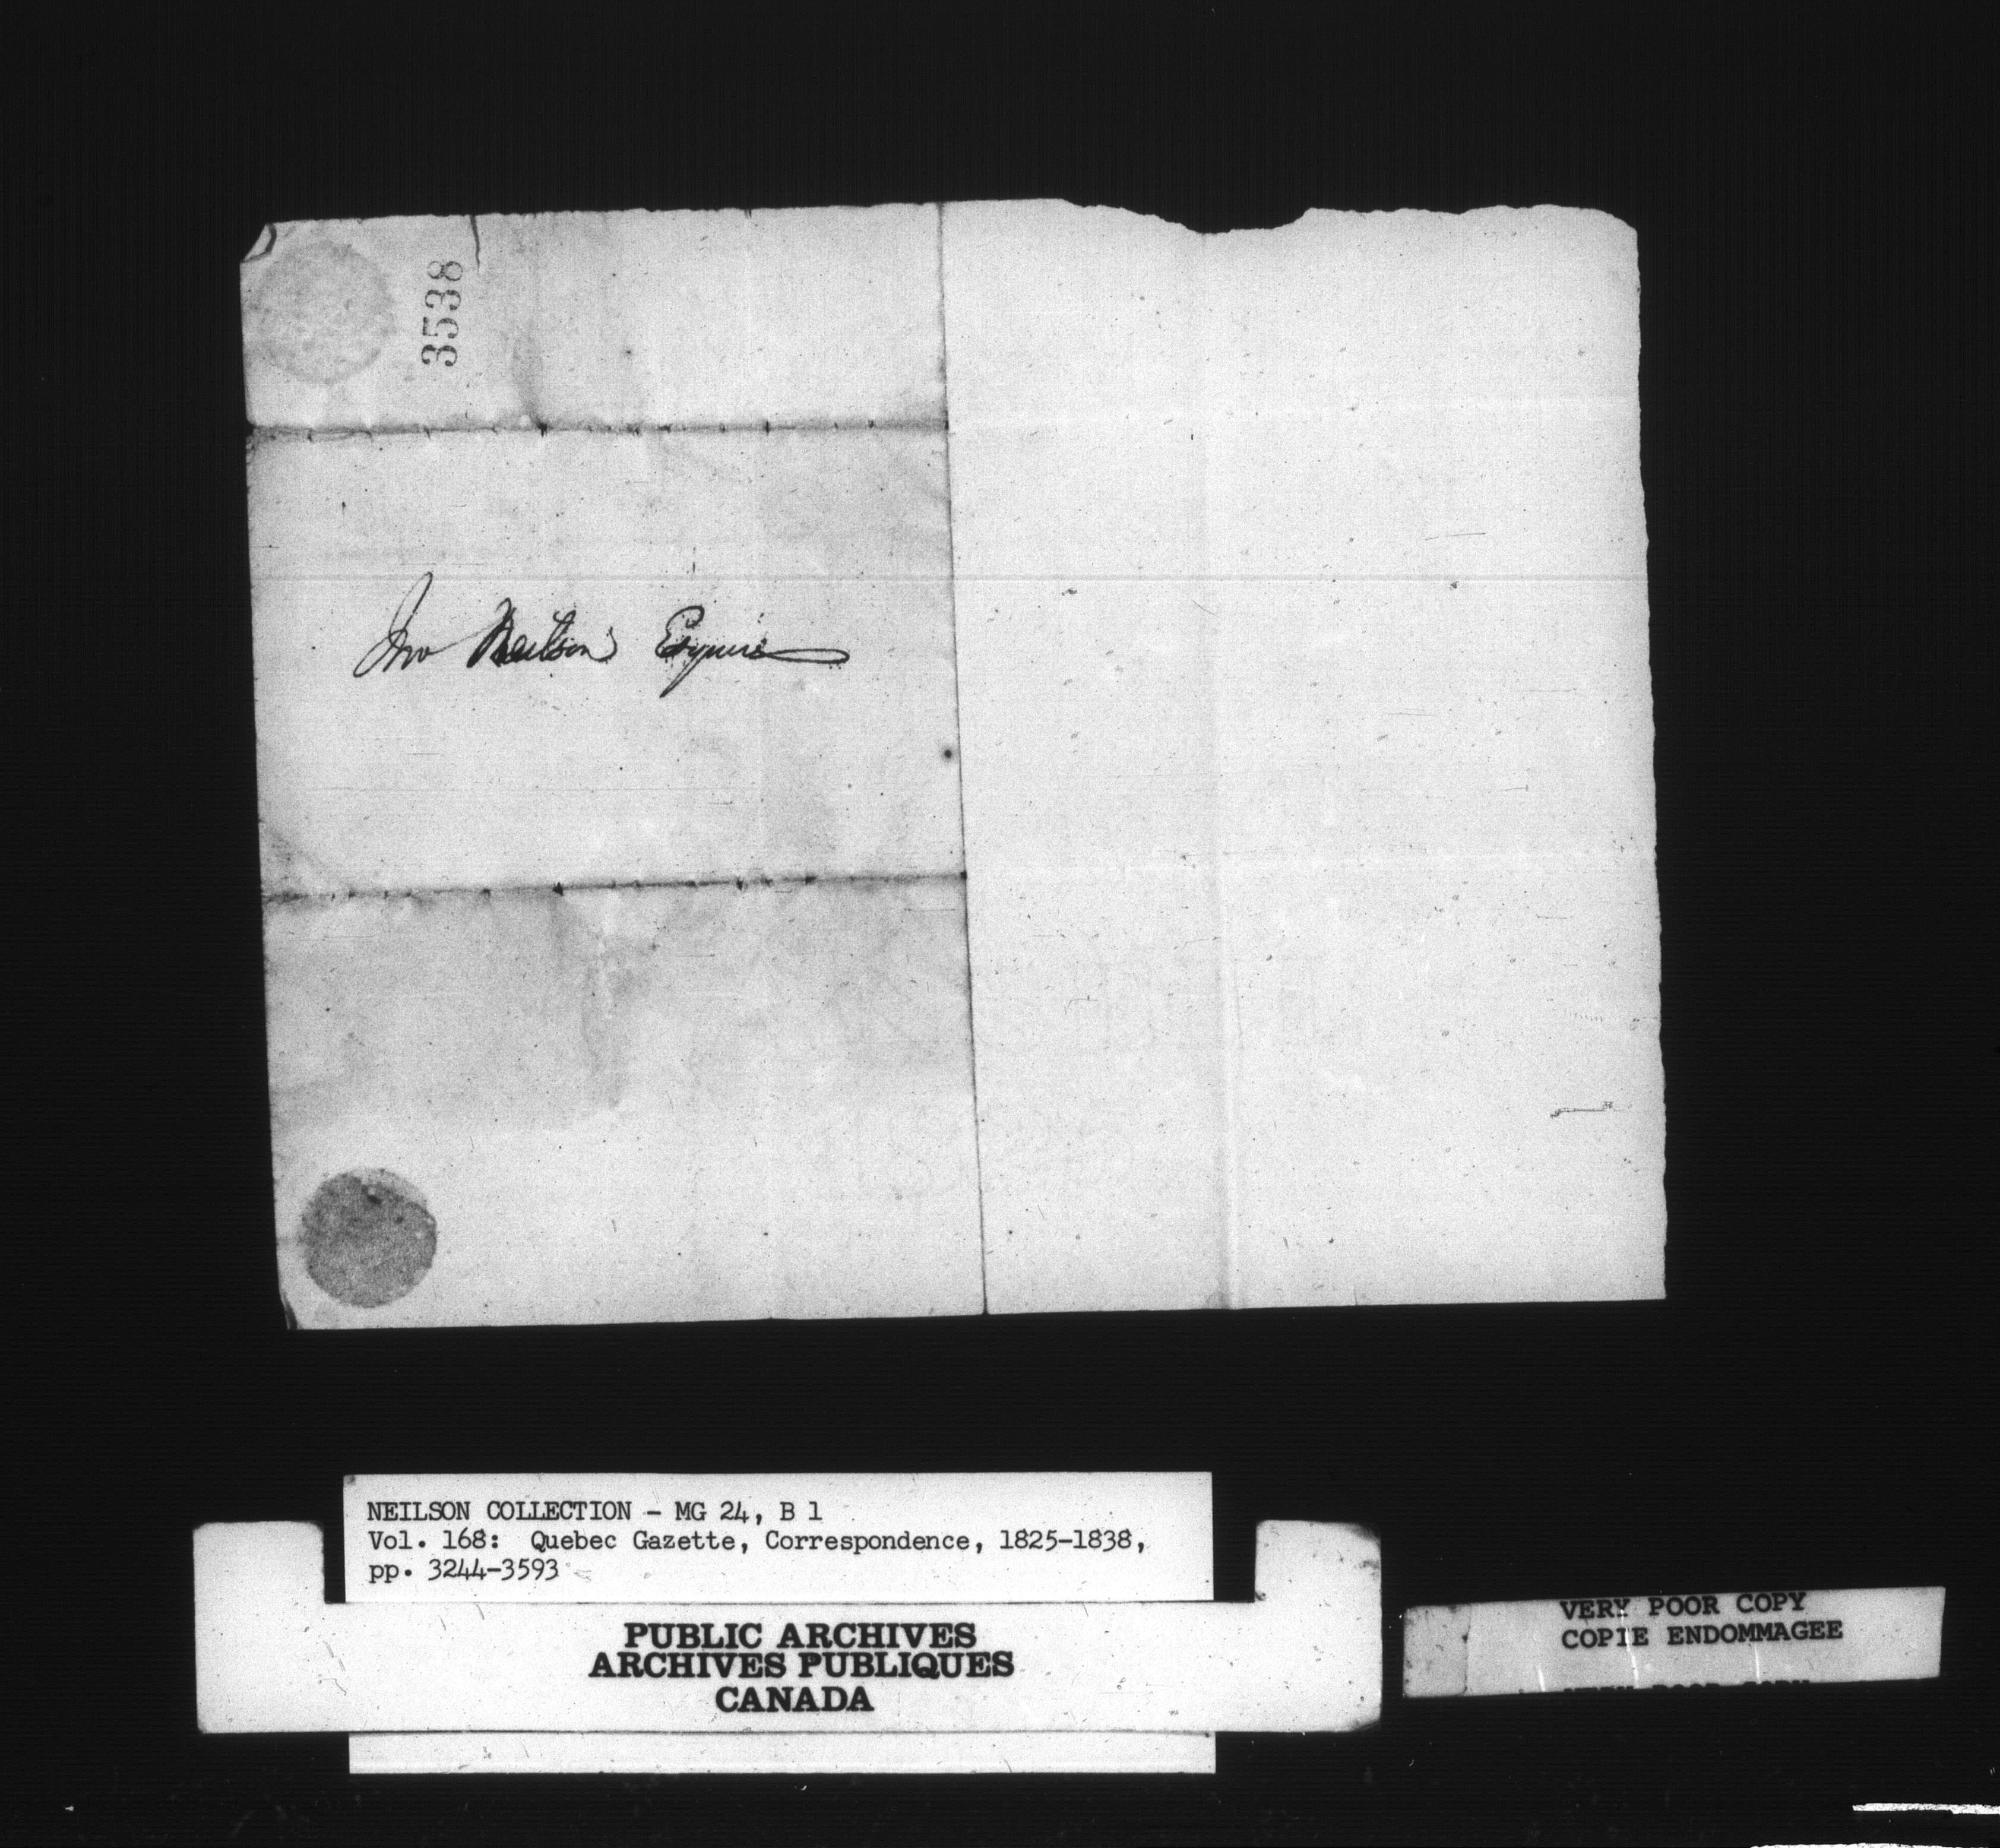 3538
Jno Neilson Esquire
NEILSON COLLECTION - MG 24, B 1
Vol. 168: Quebec Gazette, Correspondence, 1825-1838,
pp. 3244-3593
PUBLIC ARCHIVES
ARCHIVES PUBLIQUES
CANADA
VERY POOR COPY
COPIE ENDOMMAGEE
VERY POOR COPY